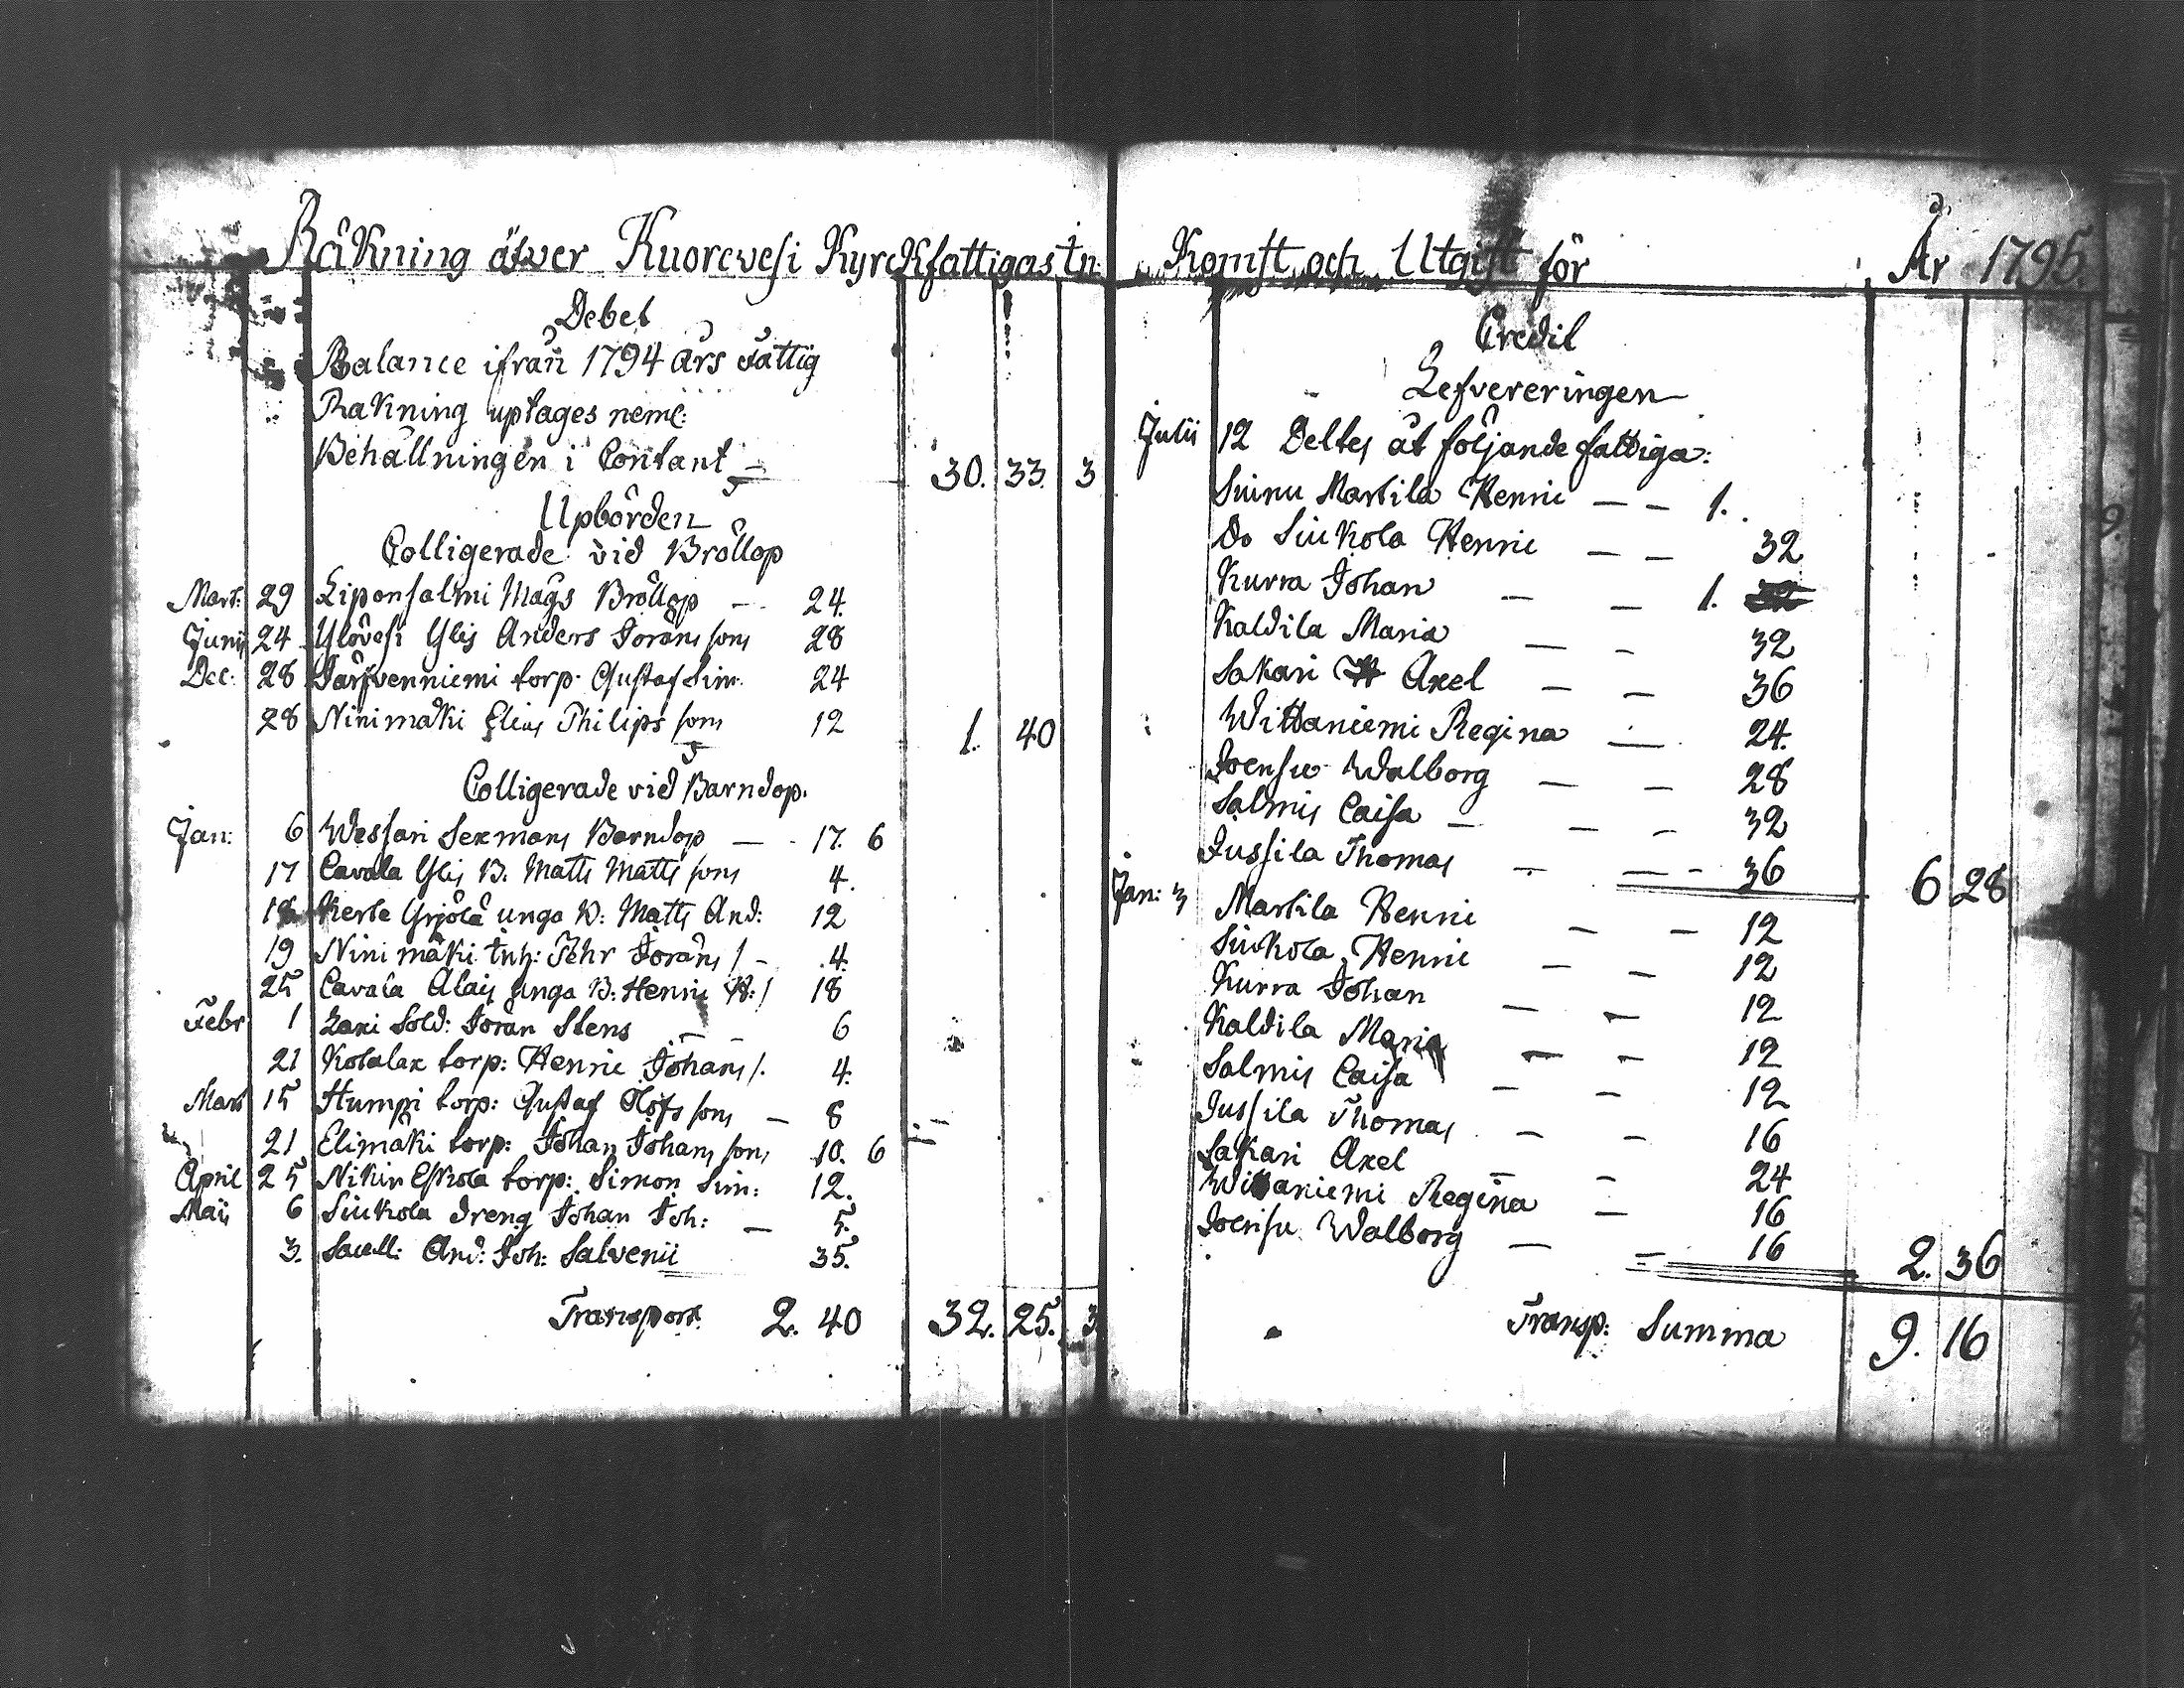 Räkning öfver Kuorevesi Kyrckfattigas In
Debet
Balance ifrån 1794 års Fattig
Räkning uptages neml:
Behållningen i Contant — 30. 33. 3
Upbörden
Colligerade vid Bröllop
Mart: 29 Liponsalmi Mågs Bröllop — 24.
Junii 24 Ylövesi Ylis Anders Jörans sons 28
Dec: 28 Järfvenniemi torp. Gustaf Sim. 24
28 Ninimäki Elias Philips sons 12 1. 40
Colligerade vid Barndop.
Jan: 6 Wessari Sexmans Barndop — 17. 6
17 Cavala Ylis B. Matts Matts sons 4.
18 Kerte Yrjölä unga B: Matts And: 12
19 Ninimäki Inh: Fehr Jörans / - 4.
25 Cavala Alais unga B: Henric H: / 18
Febr 1 Laxi Sold: Jöran Stens — 6
21 Kotalax torp: Henric Johans /. 4.
Mart 15 Humpi torp: Gustaf Olofs sons — 8
21 Elimäki torp: Johan Johans sons 10. 6
April 25 Nikin Eskola torp: Simon Sim: 12.
Maii 6 Siukola Dreng Johan Joh: — 5.
3. Sacell: And: Joh: Salvenii 35.
Transport 2. 40 32. 25. 3
Komst och Utgift för År 1795.
Credit
Lefvereringen
Julii 12 Deltes åt följande fattiga:
Suinu Martila Henric — — 1.
Do Siukola Henric — — 32
Kurra Johan — — 1.
Kaldila Maria — — 32
Sakari Axel — — 36
Wittaniemi Regina — 24.
Joensu Walborg — — 28
Salmis Caisa — — — 32
Jussila Thomas — — 36 6 28
Jan: 3 Martila Henric — — 12
Siukola Henric — — 12
Kurra Johan — — 12
Kaldila Maria — — 12
Salmis Caisa — — 12
Jussila Thomas — — 16
Sakari Axel — — 24
Wittaniemi Regina — 16
Joensu Walborg — — 16 2. 36
Transp: Summa 9. 16